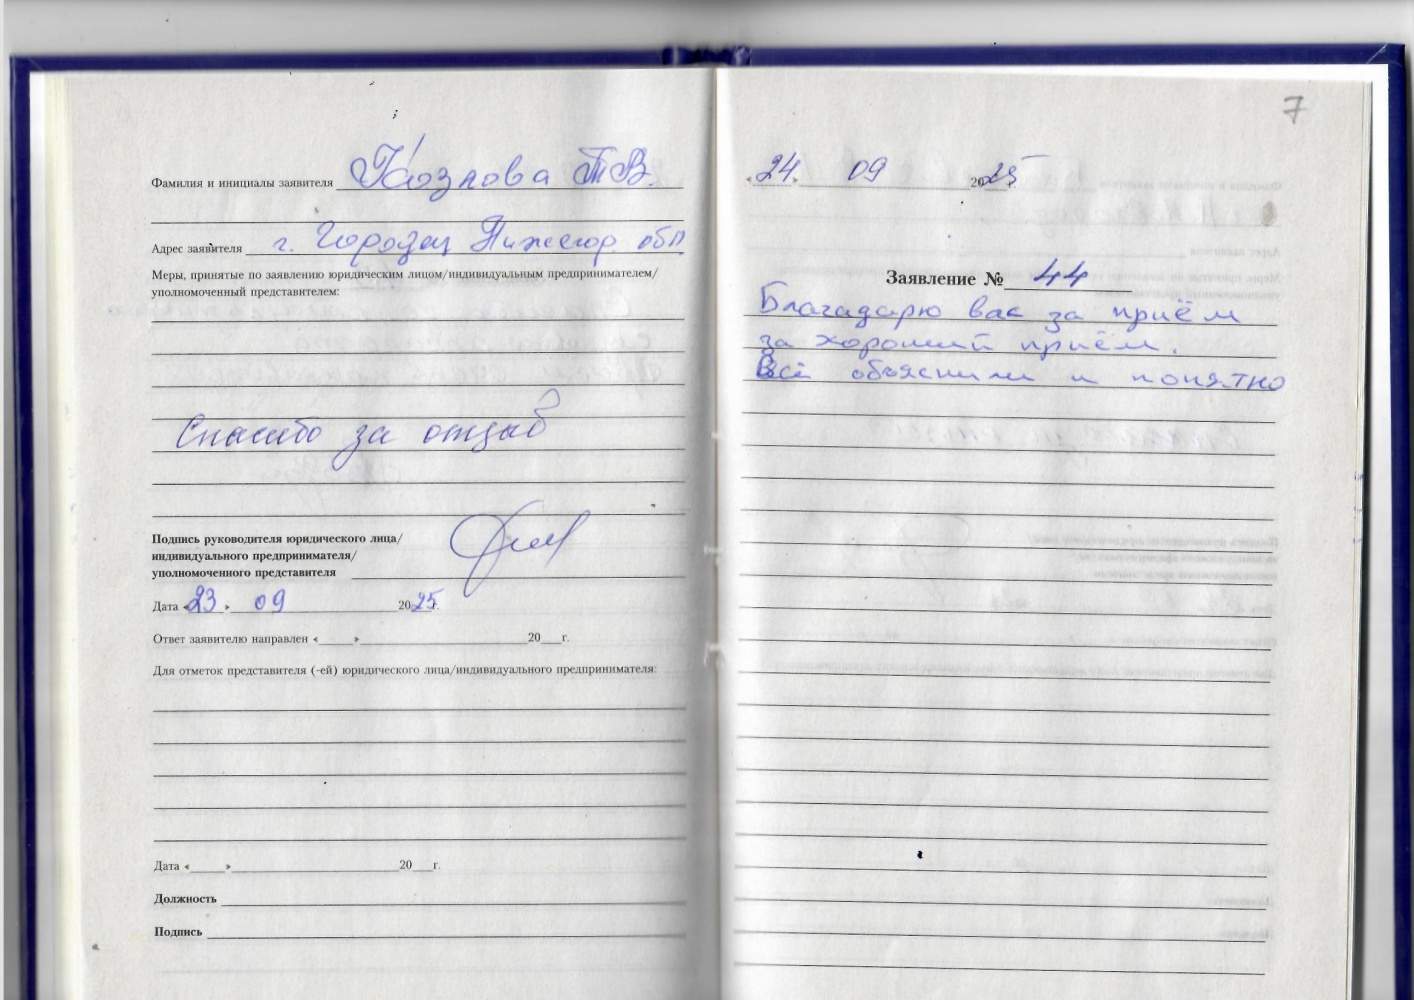 Фамилия и инициалы заявителя Козлова Т.В.
Адрес заявителя г. Городец Нижегор обл
Меры, принятые по заявлению юридическим лицом/индивидуальным предпринимателем/
уполномоченный представителем:
Спасибо за отзыв
Подпись руководителя юридического лица/
индивидуального предпринимателя/
уполномоченного представителя
Дата «23» 09 2025г.
Ответ заявителю направлен «___»___20__г.
Для отметок представителя (-ей) юридического лица/индивидуального предпринимателя:
Дата «___»___20__г.
Должность
Подпись
7
«24» 09 2025г.
Заявление № 44
Благодарю вас за приём
за хороший приём.
Всё объяснили и понятно